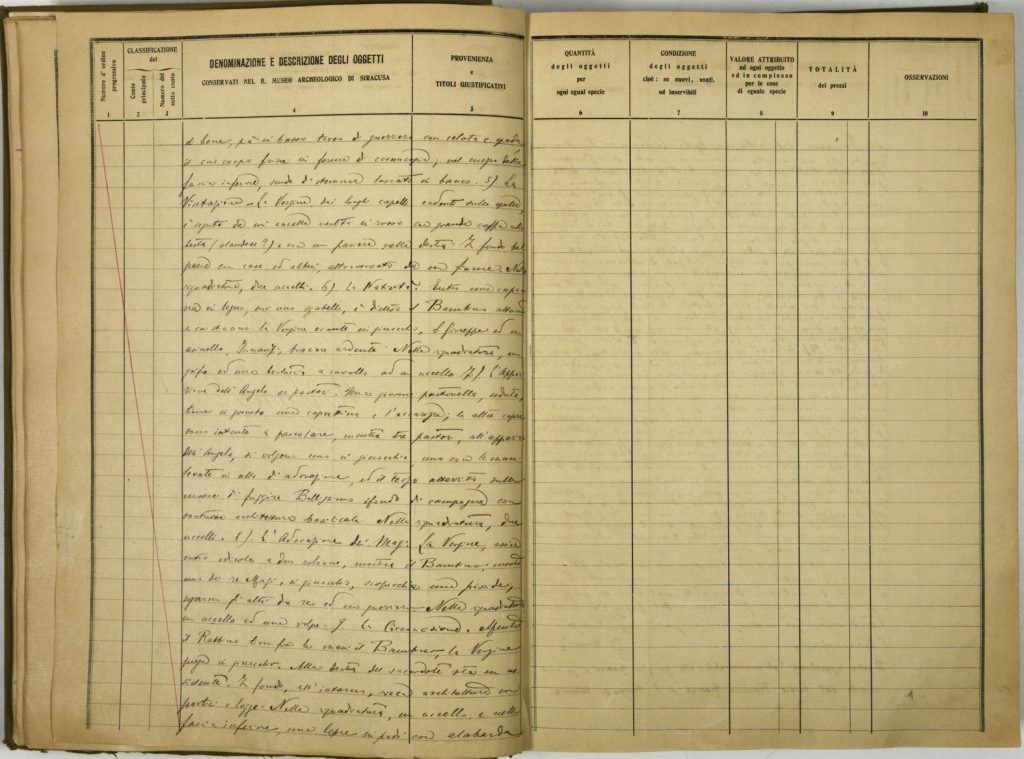 Numero d'ordine progressivo
CLASSIFICAZIONE
del
Conto principale
Numero del sotto conto
DENOMINAZIONE E DESCRIZIONE DEGLI OGGETTI
CONSERVATI NEL R. MUSEO ARCHEOLOGICO DI SIRACUSA
PROVENIENZA
e
TITOLI GIUSTIFICATIVI
1 2 3 4 5
e bene, più in basso torso di guerriero con celata e spada
il cui corpo finisce in forma di cornucopia; nel mezzo della
fascia inferiore, scudo di stemma lasciato in bianco. 5). La
Visitazione – La Vergine, dai lunghi capelli cadenti sulle spalle,
è seguita da un' ancella vestita in rosso con grande cuffia alla
testa (olandese?) e con un paniere nella destra. Il fondo del
paese con case ed alberi, attraversato da un fiume. Nella
squadratura, due uccelli. 6) La Natività. Entro una capan
na in legno, su uno sgabello, è disteso il Bambino attorno
a cui stanno la Vergine orante in ginocchio, S. Giuseppe ed un
asinello. Innanzi, braciere ardente. Nella squadratura, un
grifo ed una bertuccia a cavallo ad un uccello. 7). L'Appari
zione dell'Angelo ai pastori. Una giovane pastorella, seduta,
tiene in grembo una caprettina e l'accarezza; le altre capre
sono intente a pascolare, mentre tre pastori, all'apparire
dell'Angelo, si volgono uno in ginocchio, uno con le mani
levate in alto di adorazione, ed il terzo atterrito, sulle
mosse di fuggire. Bellissimo sfondo di campagna con
sontuosa architettura basilicale. Nella squadratura, due
uccelli. 8). L'Adorazione dei Magi. La Vergine, assisa
entro edicola a due colonne, mostra il Bambino, mentre
uno dei re Magi, in ginocchio, scoperchia una pisside,
seguono gli altri due re ed un guerriero. Nella squadratura
un uccello ed una volpe. 9. La Circoncisione. Mentre
il Rabbino tiene fra le mani il Bambino, la Vergine
prega in ginocchio. Alla destra del sacerdote sta un as
sistente. Il fondo, all'interno, reca architetture con
portici e logge. Nella squadratura, un uccello, e nella
fascia inferiore, una lepre in piedi con alabarda
QUANTITÀ
degli oggetti
per
ogni egual specie
CONDIZIONE
degli oggetti
cioè: se nuovi, usati,
od inservibili
VALORE ATTRIBUITO
ad ogni oggetto
ed in complesso
per le cose
di eguale specie
TOTALITÀ
dei prezzi
OSSERVAZIONI
6 7 8 9 10